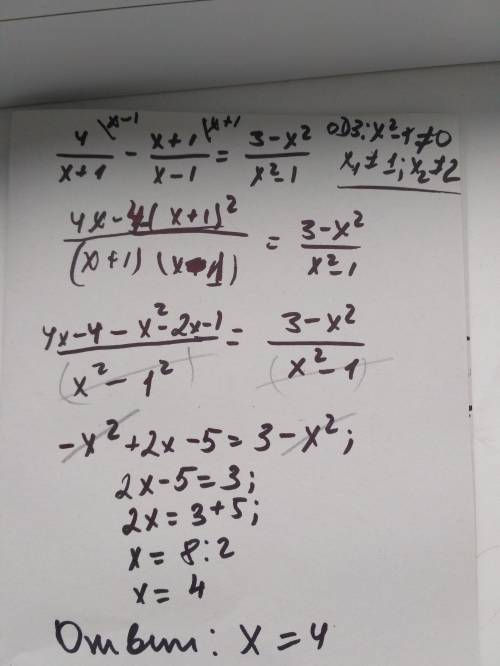 4/(x+1) \x-1 - (x+1)/(x-1) \x+1 = (3-x²)/(x²-1) ОДЗ: x²-1≠0
x₁≠1; x₂≠2
(4x-4-(x+1)²)/((x+1)(x-1)) = (3-x²)/(x²-1)
(4x-4-x²-2x-1)/(x²-1²) = (3-x²)/(x²-1)
-x²+2x-5=3-x²;
2x-5=3;
2x=3+5;
x=8:2
x=4
Ответ: x=4